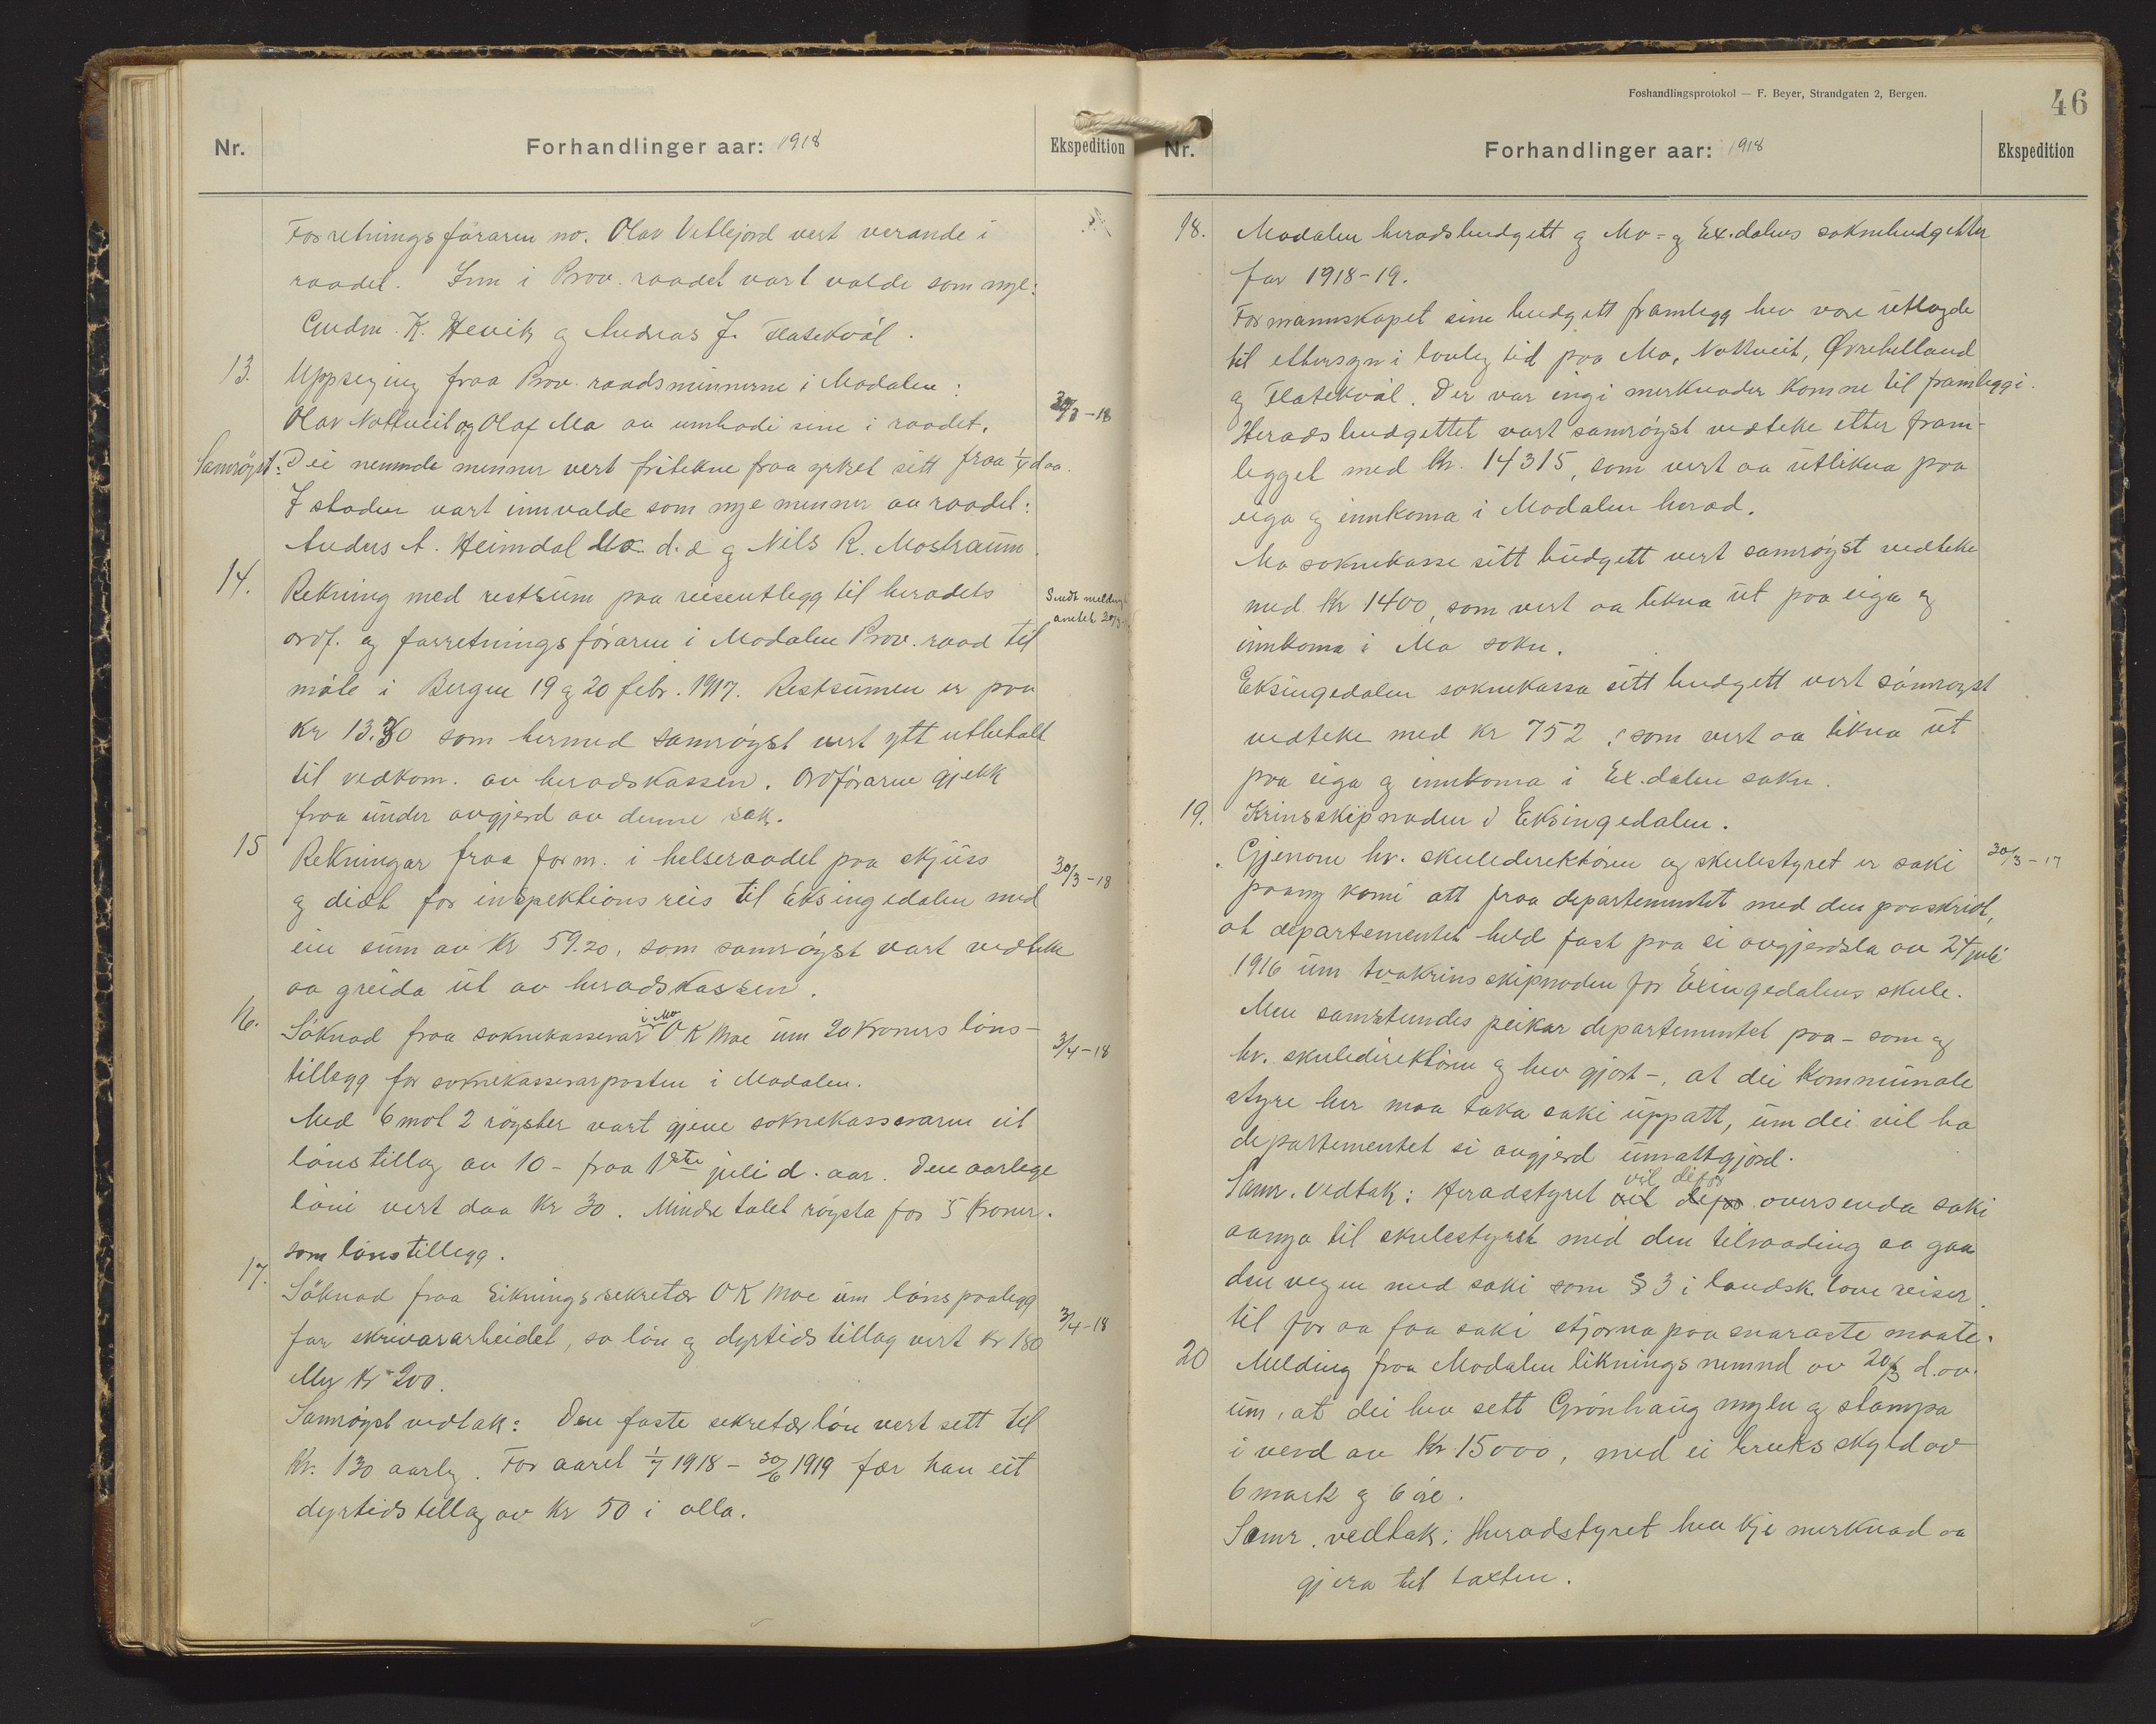 Nr.
Forhandlinger aar: 1918
Ekspedition
Forretningsföraren no. Olav Vetlejord vert verande i
raadet. Inn i Prov. raadet vart valde som nye:
Gudm. K. Hevik og Andreas J. Flatekvål.
13. Uppsejing fraa Prov. raadsmennerne i Modalen:
Olav Nottveit og Olaf Mo aa umbodi sine i raadet.
30/3-18
Samröyst: Dei nemnde menner vert fritekne fraa yrket sitt fraa 1/4 d aa.
I staden vart innvalde som nye menner av raadet:
Anders A. Heimdal Mo d. e og Nils R. Mostraum
14. Rekning med restsum paa reiseutlegg til heradets
Sendt melding
amtet 20/3
ordf. og forretningsföraren i Modalen Prov. raad til
möte i Bergen 19 og 20 febr. 1917. Restsumen er paa
Kr 13.30 som hermed samröyst vert ytt utbetalt
til vedkom. av heradskassen. Ordföraren gjekk
fraa under avgjerd av denne sak.
15 Rekningar fraa form. i helseraadet paa skjuss
og diæt for inspektionsreis til Eksingedalen med
30/3-18
ein sum av Kr 59.20, som samröyst vart vedteke
aa greida ut av heradskassen.
16. Söknad fraa soknekasserar i Mo O K Moe um 20 kroners löns-
3/4-18
tillegg for soknekasserarposten i Modalen.
Med 6 mot 2 röyster vart gjeve soknekasseraren eit
lönstillag av 10- fraa 1ste juli d. aar. Den aarlege
löni vert daa Kr 30. Mindretalet röysta for 5 kroner.
som lönstillegg.
17. Söknad fraa Likningssekretær O K Moe um lönspaalegg
3/4-18
for skrivararbeidet, so lön og dyrtidstillag vert kr 180
eller Kr 200.
Samröyst vedtak: Den faste sekretærlön vert sett til
Kr. 130 aarleg. For aaret 1/7 1918 - 30/6 1919 fær han eit
dyrtidstillag av Kr 50 i alla.
Foshandlingsprotokol — F. Beyer, Strandgaten 2, Bergen.
46
Nr.
Forhandlinger aar: 1918
Ekspedition
18. Modalen heradsbudgett og Mo- og Ex.dalens soknebudgetter
for 1918-19.
Formannskapet sine budgett framlegg hev vore utlagde
til ettersyn i lovleg tid paa Mo, Nottveit, Øvrehelland
og Flatekvål. Der var ingi merknader komne til framleggi.
Heradsbudgettet vart samröyst vedteke etter fram-
legget med Kr. 14315, som vert aa utlikna paa
eiga og innkoma i Modalen herad.
Mo soknekasse sitt budgett vert samröyst vedteke
med Kr 1400, som vert aa likna ut paa eiga og
innkoma i Mo sokn.
Eksingedalen soknekassa sitt budgett vert samröyst
vedteke med Kr 752, som vert aa likna ut
paa eiga og innkoma i Ex.dalen sokn.
19. Krinsskipnaden i Eksingedalen.
Gjenom hr. skuledirektören og skulestyret er saki
30/3-17
paany komi att fraa departementet med den paaskrift,
at departementet held fast paa si avgjerdsla av 24 juli
1916 um tvakrinsskipnaden for Exingedalens skule.
Men samstundes peikar departementet paa - som og
hr. skuledirektören og hev gjort -, at dei kommunale
styre her maa taka saki uppatt, um dei vil ha
departementet si avgjerd umattgjord.
Samr. vedtak: Heradstyret vil difor oversenda saki
aanya til skulestyret med den tilraading aa gaa
den vegen med saki som § 3 i landsk. love viser
til for aa faa saki stjorna paa snaraste maate.
20 Melding fraa Modalen liknings nemnd av 20/3 d. aa.
um, at dei hev sett Grönhaug myln og stampa
i verd av Kr. 15000, med ei bruksskyld av
6 mark og 6 öre.
Samr. vedtak: Heradstyret hev kje merknad aa
gjera til taxten.